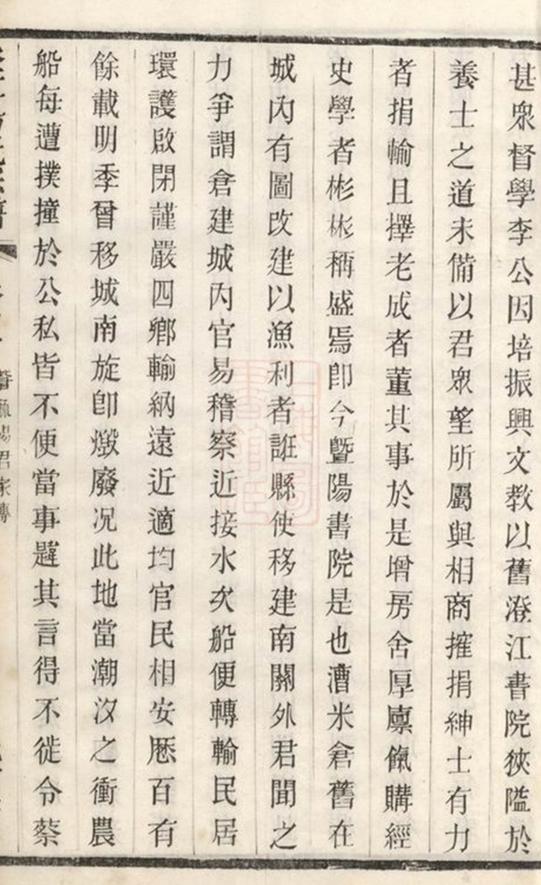 甚眾督學李公因培振興文教以舊澄江書院狹隘於
養士之道未備以君眾望所屬與相商搉捐紳士有力
者捐輸且擇老成者董其事於是增房舍厚廪餼購經
史學者彬彬稱盛焉卽今暨陽書院是也漕米倉舊在
城內有圖改建以漁利者誑縣使移建南關外君聞之
力爭謂倉建城內官易稽察近接水次船便轉輸民居
環護啟閉謹嚴四鄉輸納遠近適均官民相安歷百有
餘載明季曾移城南旋卽燬廢况此地當潮汐之衝農
船每遭撲撞於公私皆不便當事韙其言得不徙令蔡